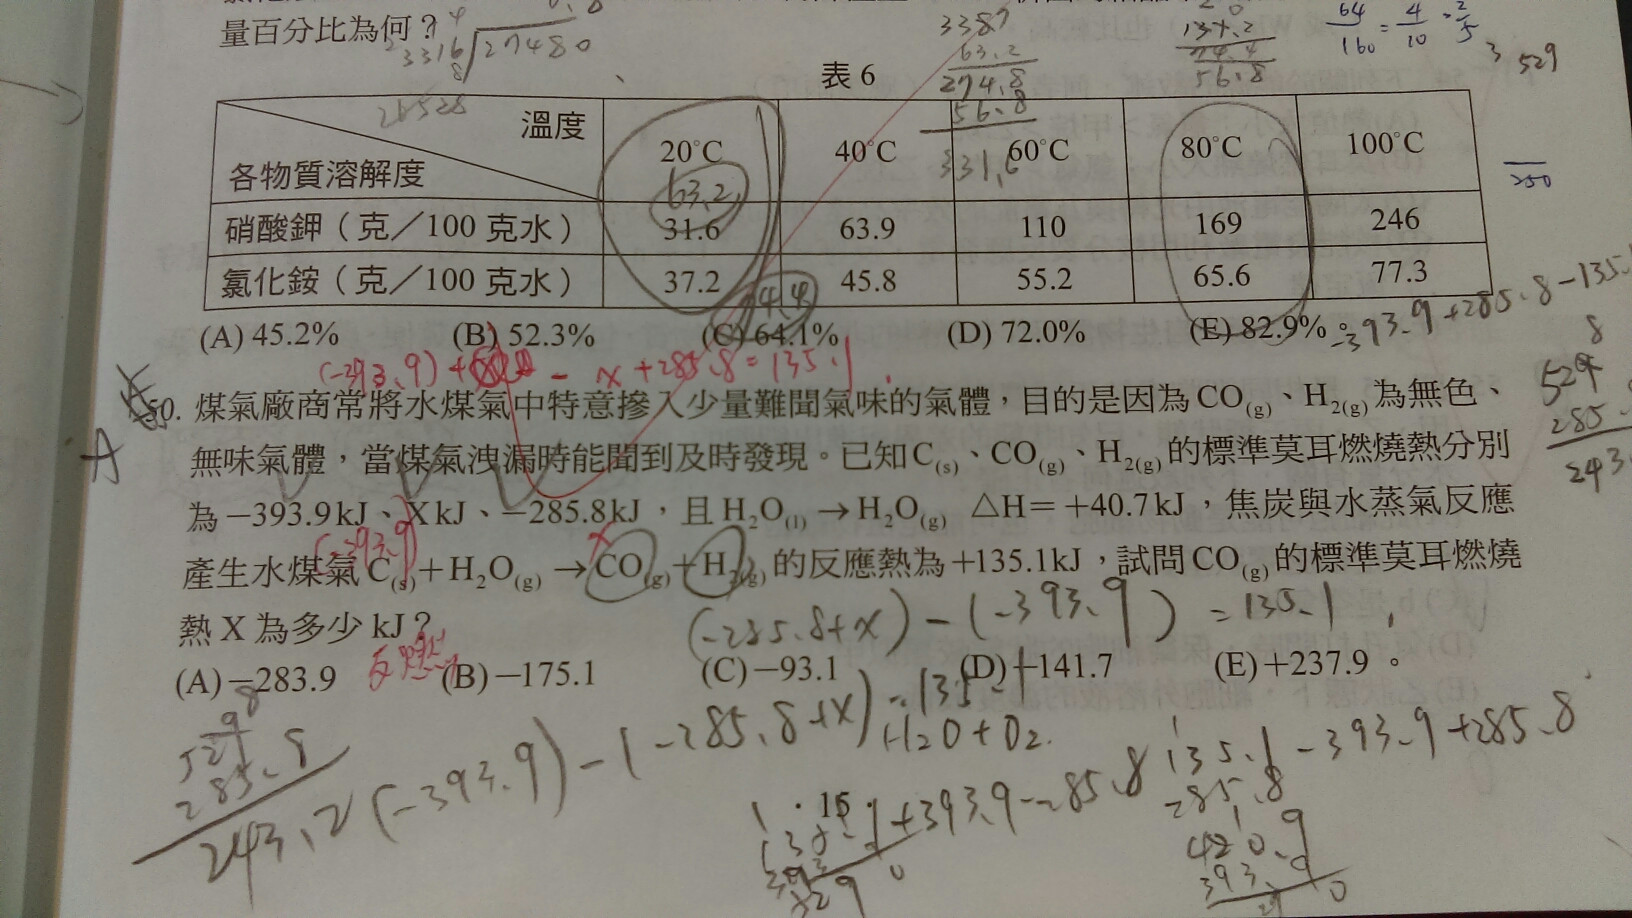 量百分比為何？
表 6
溫度
各物質溶解度
20°C 40°C 60°C 80°C 100°C
硝酸鉀（克／100 克水） 31.6 63.9 110 169 246
氯化銨（克／100 克水） 37.2 45.8 55.2 65.6 77.3
63.2
(A) 45.2% (B) 52.3% (C) 64.1% (D) 72.0% (E) 82.9%。
A
50. 煤氣廠商常將水煤氣中特意摻入少量難聞氣味的氣體，目的是因為 CO(g)、H2(g) 為無色、
無味氣體，當煤氣洩漏時能聞到及時發現。已知 C(s)、CO(g)、H2(g) 的標準莫耳燃燒熱分別
為－393.9 kJ、X kJ、－285.8 kJ，且 H2O(l) → H2O(g) △H＝＋40.7 kJ，焦炭與水蒸氣反應
產生水煤氣 C(s)＋H2O(g) → CO(g)＋H2(g) 的反應熱為＋135.1 kJ，試問 CO(g) 的標準莫耳燃燒
熱 X 為多少 kJ？
(−285.8+x) − (−393.9) = 135.1
(A)－283.9 (B)－175.1 (C)－93.1 (D)＋141.7 (E)＋237.9。
(−393.9) − (−285.8+x)
H2O + O2
135.1 − 393.9 + 285.8
285.8
420.9
393.9
243.2
3387
63.2
274.8
56.8
331.6
134.2
74.4
56.8
64/160 = 4/10 = 2/5
529